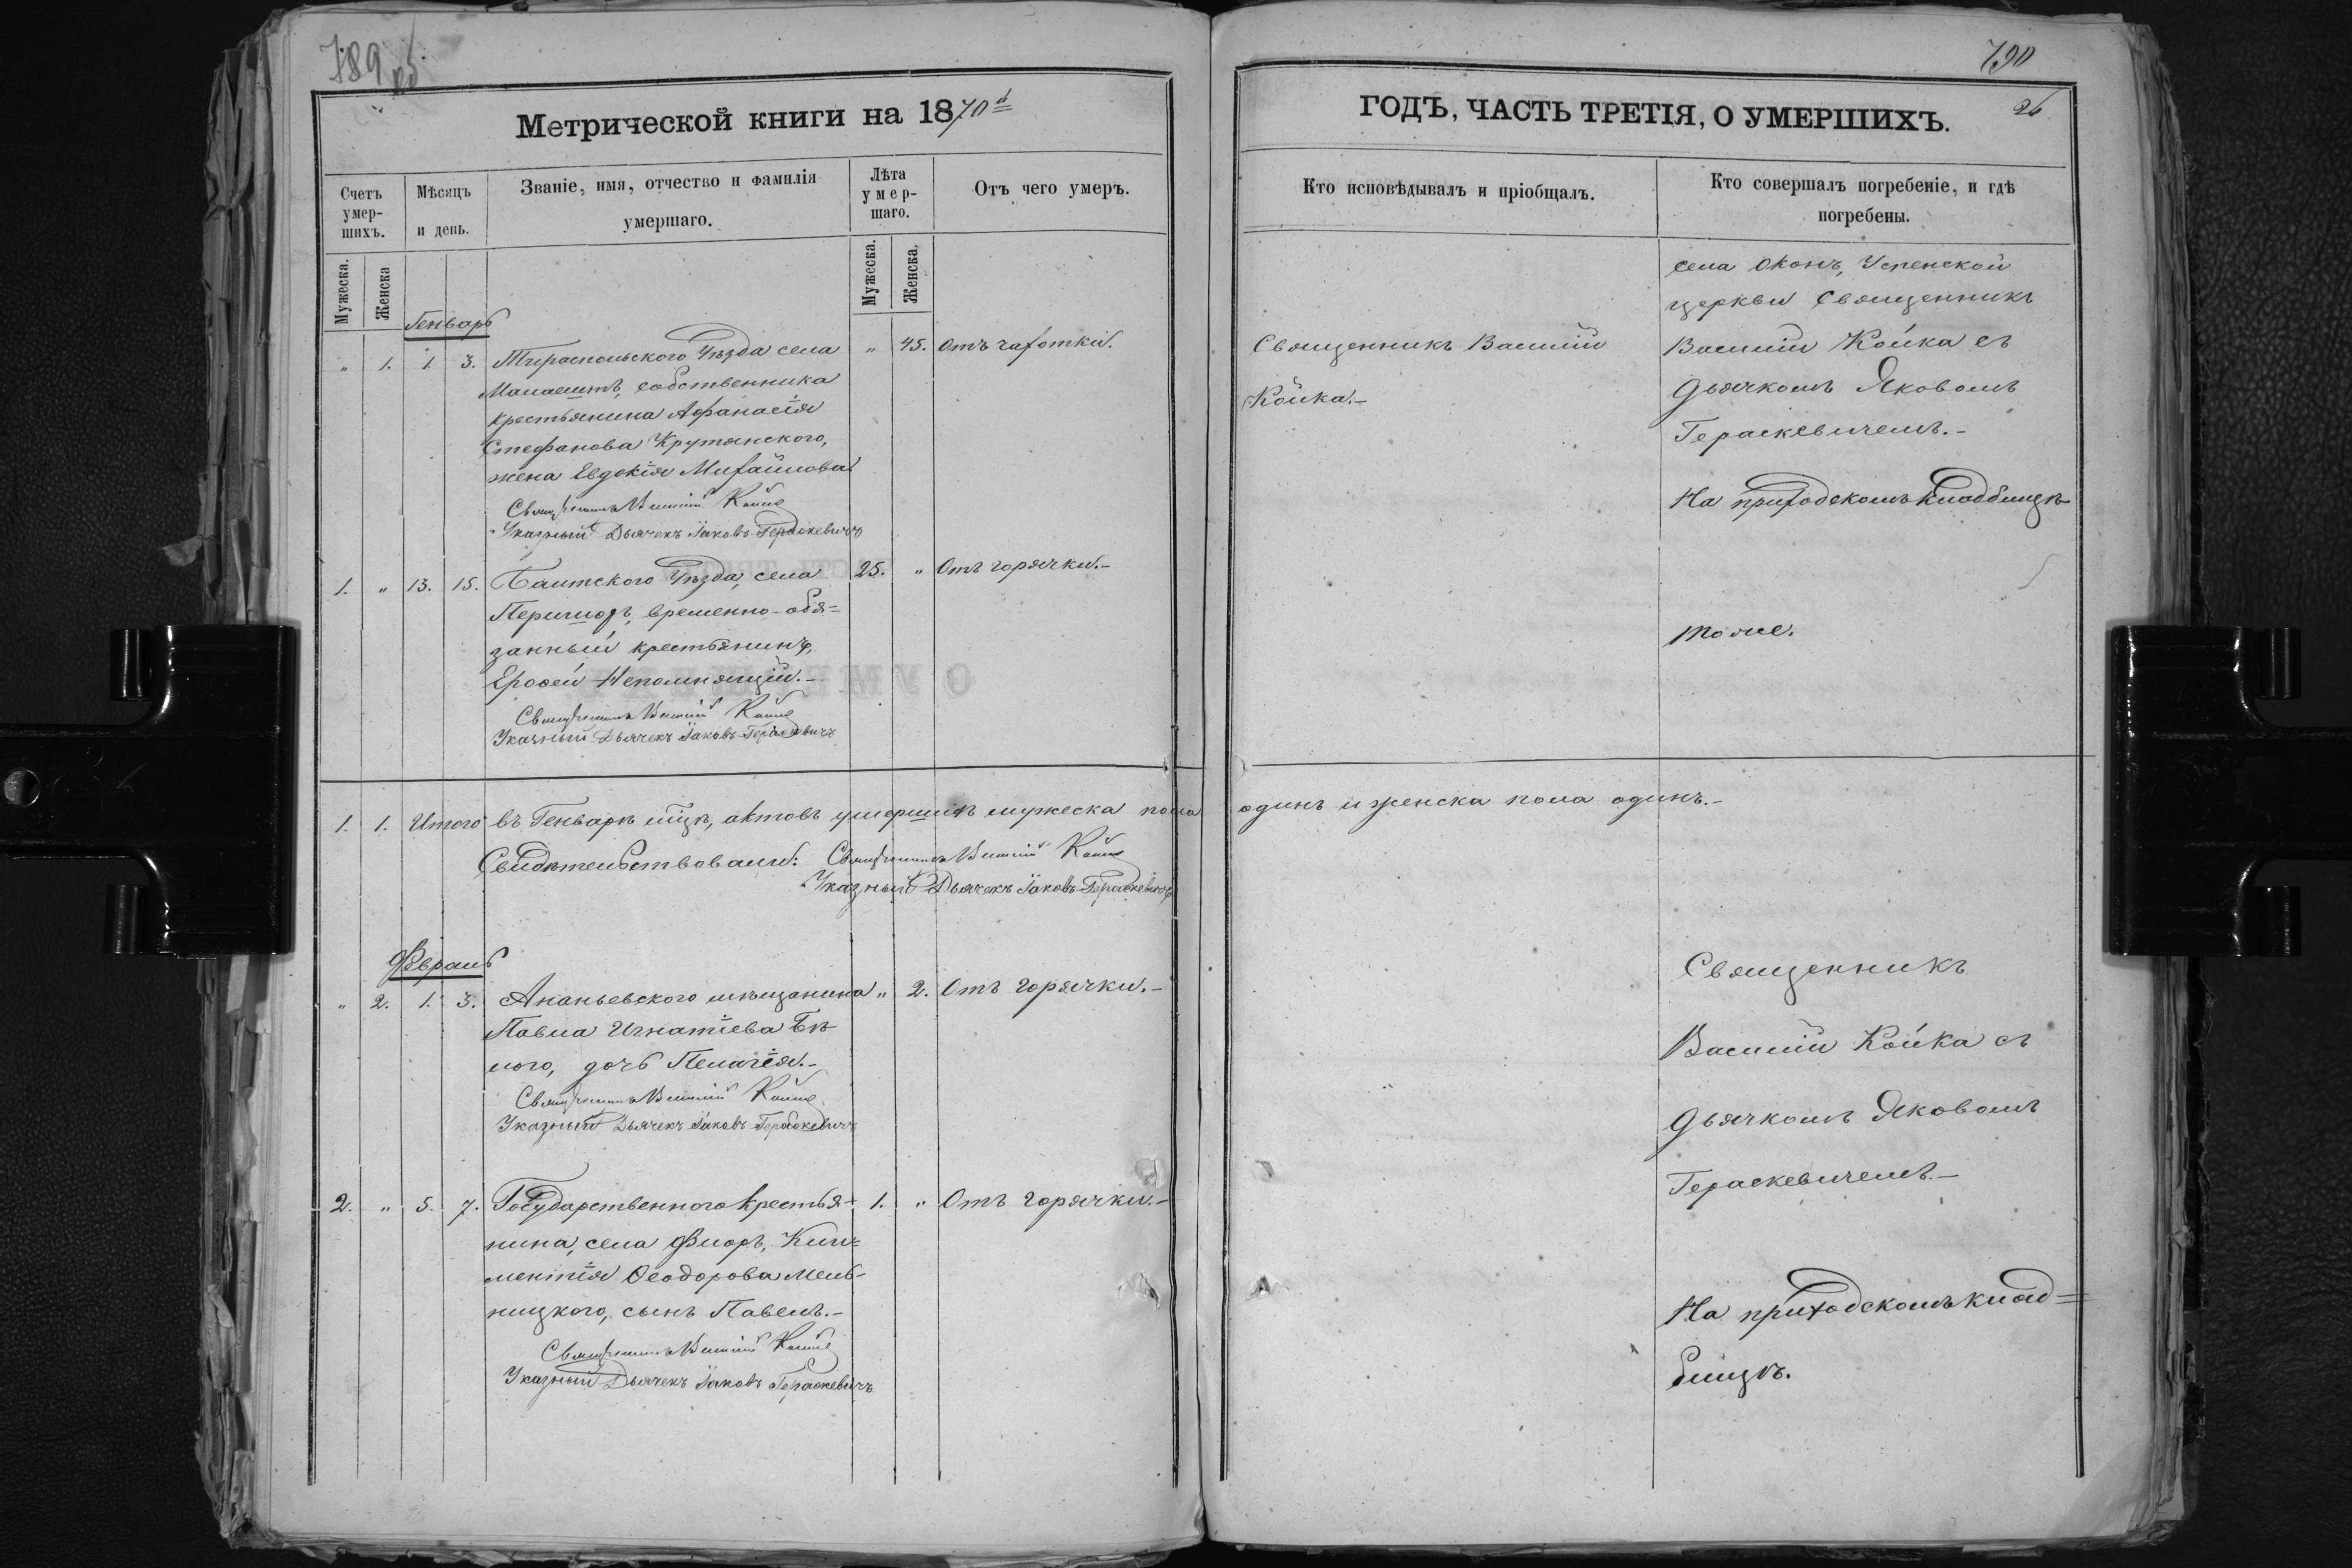 789 об.
Метрической книги на 1870й
Счетъ умер-шихъ.
Мѣсяцъ и день.
Званіе, имя, отчество и фамилія
умершаго.
Лѣта умер-шаго.
Отъ чего умеръ.
Мужеска.
Женска
Мужеска.
Женска.
Генварь
„ 1. 1. 3. Тираспольского Уѣзда села „ 45. Отъ чахотки.
Малаештъ, собственника
крестьянина Афанасія
Стефанова Крутянского,
жена Евдокія Михайлова
Священникъ Василій Койка
Указный Дьячекъ Іаковъ Гераскевичъ
1. „ 13. 15. Балтского Уѣзда, села 25. „ Отъ горячки.-
Перишоръ, временно-обя=
занный крестьянинъ,
Ерофей Непомнящій.-
Священникъ Василій Койка
Указный Дьячекъ Іаковъ Гераскевичъ
1. 1. Итого въ Генварѣ м͠цѣ, актовъ умершихъ мужеска пола
Свидѣтельствовали: Священникъ Василій Койка
Указный Дьячекъ Іаковъ Гераскевичъ
Февраль
„ 2. 1. 3. Ананьевского мѣщанина „ 2. Отъ горячки.-
Павла Игнатіева Бѣ
лого, дочь Пелагія.-
Священникъ Василій Койка
Указный Дьячекъ Іаковъ Гераскевичъ
2. „ 5. 7. Государственного крестья- 1. „ Отъ горячки.-
нина, села Флоръ, Кли=
ментія Ѳеодорова Мель-
ницкого, сынъ Павелъ.-
Священникъ Василій Койка
Указный Дьячекъ Іаковъ Гераскевичъ
790
26
ГОДЪ, ЧАСТЬ ТРЕТІЯ, О УМЕРШИХЪ.
Кто исповѣдывалъ и пріобщалъ.
Кто совершалъ погребеніе, и гдѣ
погребены.
села Оконъ, Успенской
церкви Священникъ
Священникъ Василій
Койка.-
Василій Койка съ
дьячкомъ Яковомъ
Гераскевичемъ.-
На приходскомъ кладбищѣ
тоже.
одинъ и женска пола одинъ.-
Священникъ
Василій Койка съ
дьячкомъ Яковомъ
Гераскевичемъ.-
На приходскомъ клад=
бищѣ.